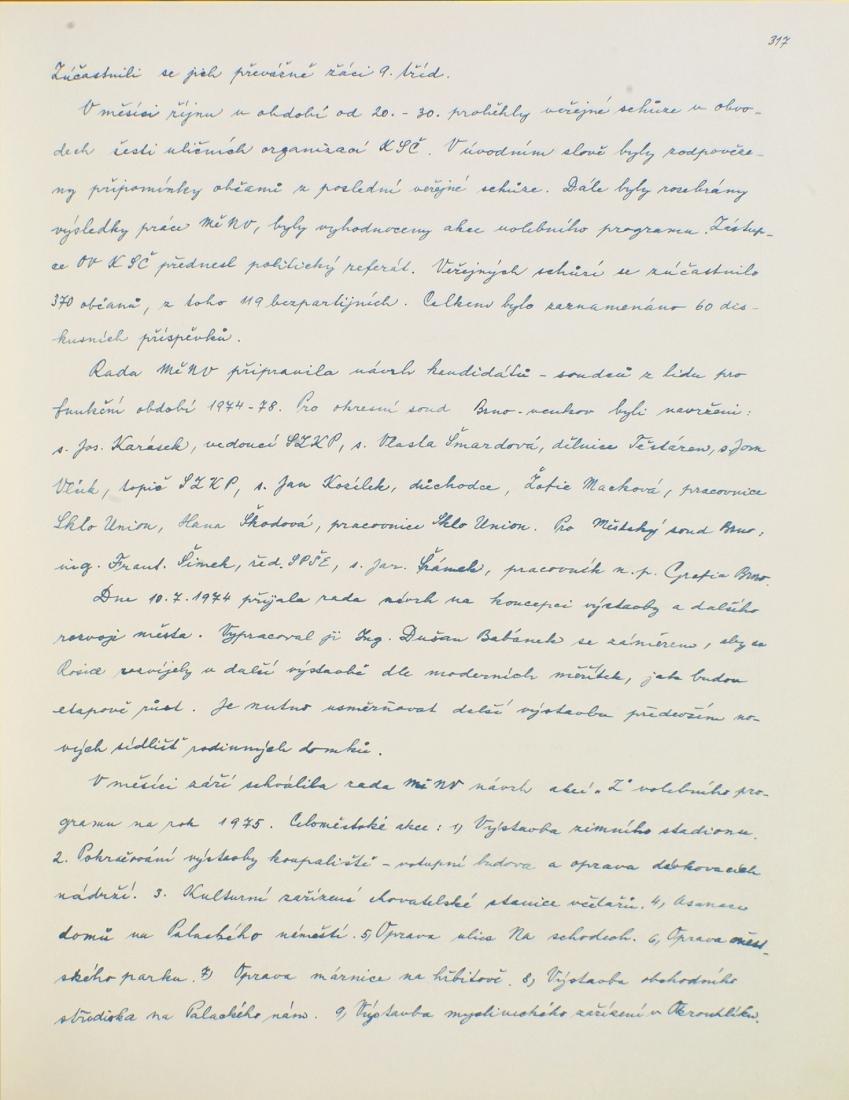 317
Zúčastnili se jich převážně žáci 9. tříd.
V měsíci říjnu v období od 20. - 30. proběhly veřejné schůze v obvo-
dech šesti uličních organizací KSČ. V úvodním slově byly zodpověze-
ny připomínky občanů z poslední veřejné schůze. Dále byly rozebrány
výsledky práce MěNV, byly vyhodnoceny akce volebního programu. Zástup-
ce OV KSČ přednesl politický referát. Veřejných schůzí se zúčastnilo
370 občanů, z toho 119 bezpartijních. Celkem bylo zaznamenáno 60 dis-
kusních příspěvků.
Rada MěNV připravila návrh kandidátů - soudců z lidu pro
funkční období 1974-78. Pro okresní soud Brno-venkov byli navrženi:
s. Jos. Karásek, vedoucí SZKP, s. Vlasta Šmardová, dělnice Těstáren, s. Jom
Vlček, topič SZKP, s. Jan Kosílek, důchodce, Žofie Macková, pracovnice
Sklo Union, Hana Škodová, pracovnice Sklo Union. Pro Městský soud Brno:
ing. Frant. Šimek, řed. SPŠE, s. Jar. Šrámek, pracovník n. p. Grafia Brno.
Dne 10.7.1974 přijala rada návrh na koncepci výstavby a dalšího
rozvoje města. Vypracoval ji Ing. Dušan Babánek se záměrem, aby se
Rosice rozvíjely v další výstavbě dle moderních měřítek, jak budou
etapově růst. Je nutno usměrňovat další výstavbu především no-
vých sídlišť rodinných domků.
V měsíci září schválila rada MěNV návrh akcí "Z" volebního pro-
gramu na rok 1975. Celoměstské akce: 1) Výstavba zimního stadionu.
2. Pokračování výstavby koupaliště - vstupní budova a oprava dávkovacích
nádrží. 3. Kulturní zařízení chovatelské stanice včelařů. 4, Asanace
domů na Palackého náměstí. 5, Oprava ulice Na schodech. 6, Oprava měst-
ského parku. 7) Oprava márnice na hřbitově. 8, Výstavba obchodního
střediska na Palackého nám. 9, Výstavba mysliveckého zařízení v Okrouhlíku.